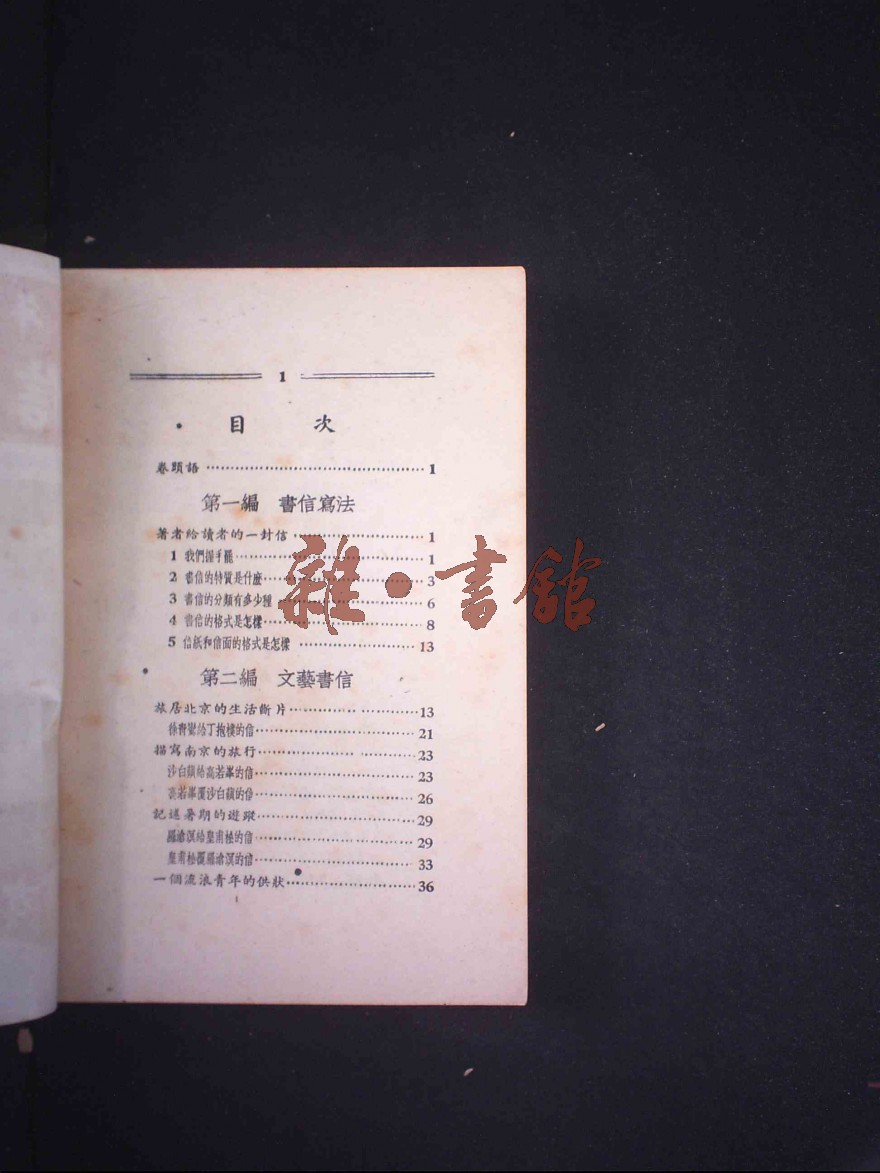 1
目 次
卷頭語 1
第一編 書信寫法
著者給讀者的一封信 1
1 我們握手罷 1
2 書信的特質是什麼 3
3 書信的分類有多少種 6
4 書信的格式是怎樣 8
5 信紙和信面的格式是怎樣 13
第二編 文藝書信
旅居北京的生活斷片 13
給丁抱樓的信 21
描寫南京的旅行 23
沙白蘋給高若峯的信 23
高若峯覆沙白蘋的信 26
記述暑期的遊蹤 29
羅滄溟給皇甫松的信 29
皇甫松覆羅滄溟的信 33
一個流浪青年的供狀 36
雜·書館